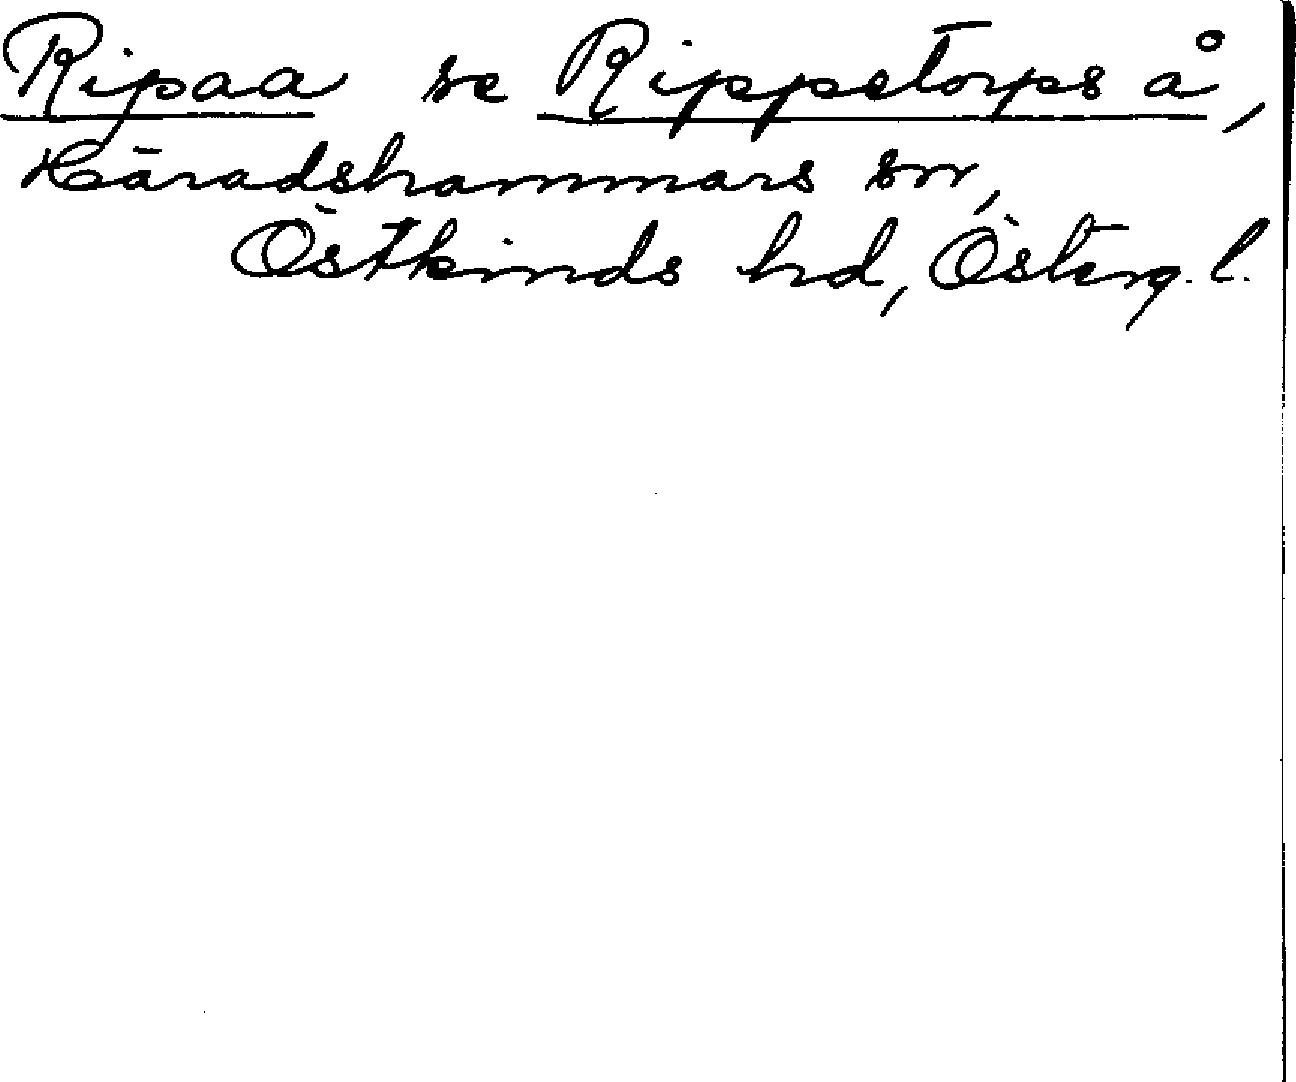 Ripaa se Rippstorps å,
Häradshammars sn,
Östkinds hd, Österg. l.